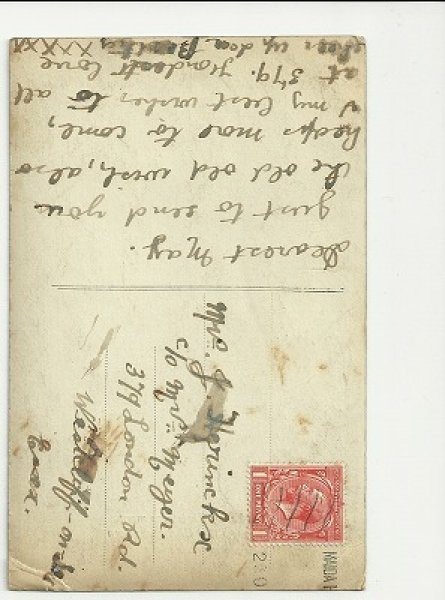 Dearest May.
Just to send you
the old old wish, also
heaps more to come,
& my best wishes to all
at 379. Fondest love
XXXXX
Mrs. J. Herinckx
c/o Mrs Meyer.
379 London Rd.
Westcliff-on-Sea
Essex.
1 ONE PENNY 1
23 0